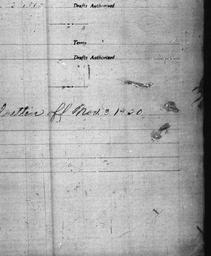 Drafts Authorized
Terms
Drafts Authorized
off Nov. 3. 1920.